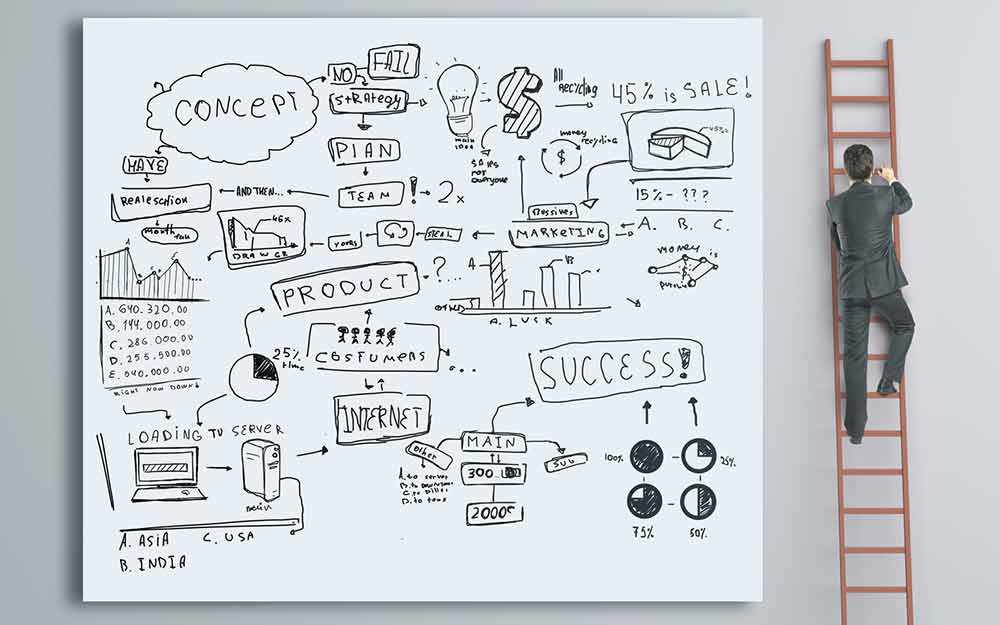 CONCEPT
NO
FAIL
STRATEGY
PlAN
TEAM ! 2x
AND THEN...
HAVE
main
idea
$
SALES
not
everyone
All
Recycling
45% is SALE!
45%
money
recycling
$
15% - ???
A. B. C.
MARKETING
STEAL
46x
PRODUCT
?...
A
B
others
A. LUCK
money is
A. 640.320.00
B. 144.000.00
C. 286.000.00
D. 255.500.00
E. 040.000.00
RIGHT NOW DOWN!
25%
time
COSTUMERS
...
INTERNET
SUCCESS!
LOADING TO SERVER
MAIN
other
SUB
300.
2000$
100%
25%
75%
50%
A. ASIA
C. USA
B. INDIA